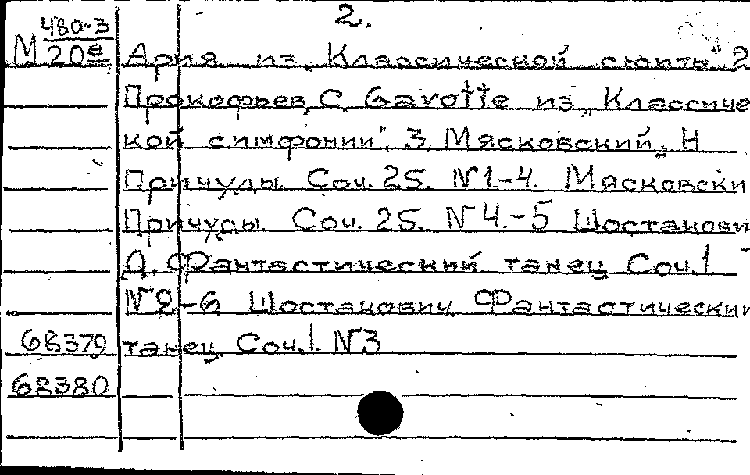 2.
480-3
М 20е Ария из „Классической сюиты" 2
Прокофьев, С. Gavotte из „Классиче
кой симфонии". 3. Мясковский, Н
Причуды. Соч. 25. №1-4. Мясковски
Причуды. Соч. 25. №4.-5 Шостакови
Д. Фантастический танец Соч.1
№2-6 Шостакович Фантастический
68379 танец. Соч.1. №3
68380